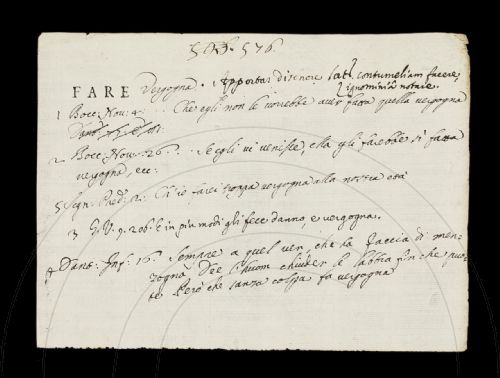 576.
FARE Vergogna. Apportar disenore lat. contumeliam facere,
ignominia notare.
1 Bocc: Nov: 4: Che egli non le vorrebbe aver fatta quella vergogna
2 Bocc: Nov: 26: Se egli vi venisse, ella gli farebbe sì fatta
vergogna, ec:
5 Segn: Pred: 2: Ch'io facci vergogna alla nostra età
3 G. V. 9. 206. E in piu modi gli fece danno, e vergogna.
4 Dant: Inf: 16. Sempre a quel ver, che ha faccia di men-
zogna Dee l'huom chiuder le labbra fin che puo-
te Però che sanza colpa fa vergogna